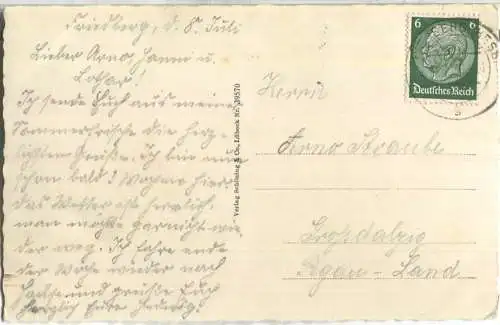 Friedberg, d. 8. Juli
Lieber Arno, Hanni u.
Lothar!
Ich sende Euch aus meiner
Sommerfrische die herz-
lichsten Grüße. Ich bin nun
schon bald 3 Wochen hier
das Wetter ist herrlich
man möchte garnicht wie-
der weg. Ich fahre ende
der Woche wieder nach
Hause und grüße Euch
herzlich Eure Hedwig.
Verlag Schöning & Co., Lübeck Nr. 39570
6 6
Deutsches Reich
Herrn
Arno Straube
Land